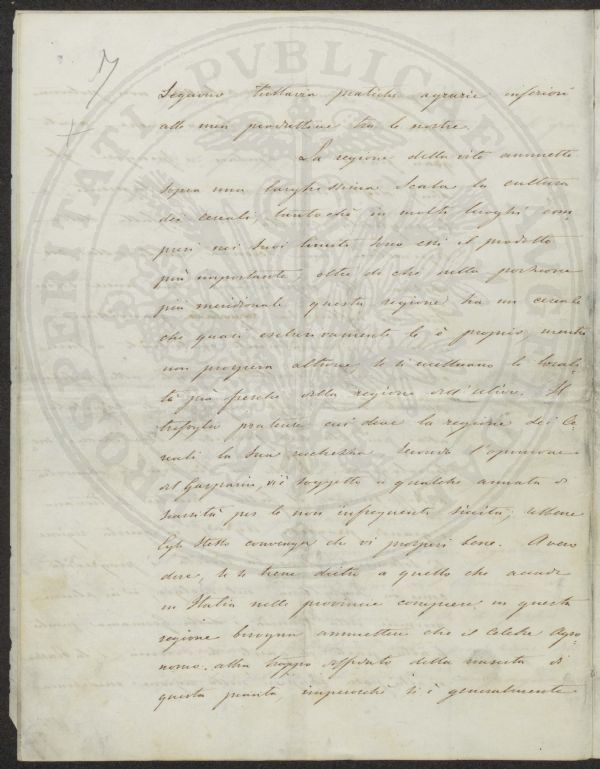 7
Seguono tuttavia pratiche agrarie inferiori
alla men produttive tra le nostre.
La regione della vite ammette
sopra una larghissima scala la cultura
dei cereali tantochè in molti luoghi com
presi nei suoi limiti sono essi il prodotto
più importante, oltre di che nella porzione
più meridionale questa regione ha un cereale
che quasi esclusivamente le è proprio, mentre
non prospera altrove, se si eccettuano le locali
tà più fresche della regione dell'ulivo. Il
trifoglio pratense cui deve la regione dei Ce
reali la sua ricchezza secondo l'opinione
del Gasparin, vi è soggetto a qualche annata di
scarsità per le non infrequenti siccità; sebbene
Egli stesso convenga che vi prosperi bene. A vero
dire, se si tiene dietro a quello che accade
in Italia nelle provincie comprese in questa
regione bisogna ammettere che il Celebre Agro
nomo. abbia troppo diffidato della riuscita di
questa pianta imperocchè si è generalmente
PROSPERITATI PVBLICAE AVGENDAE